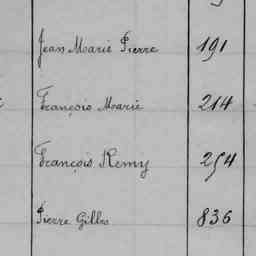 Jean Marie Pierre 191
François Marie 214
François Remy 254
Pierre Gilles 836